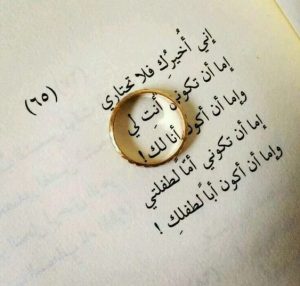 (٦٥)
إني أُخيرُكِ فلا تختاري
إما أن تكوني أنتِ لي
وإما أن أكون أنا لك!
إما أن تكوني أمّاً لطفلتي
وإما أن أكون أباً لطفلكِ !